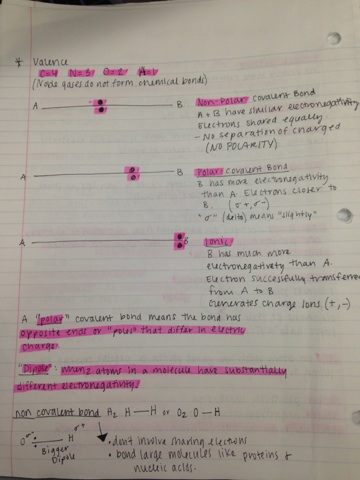 * Valence
C=4 N=3 O=2 H=1
(Noble gases do not form chemical bonds)
A B Non-Polar Covalent Bond
A + B have similar electronegativity
Electrons shared equally
- No separation of charged
(NO POLARITY)
A B Polar Covalent Bond
B has more electronegativity
than A. Electrons closer to
B. (σ+, σ-)
"σ" (delta) means "slightly"
A B Ionic
B has much more
electronegativity than A.
Electron succesfully transferred
from A to B
Generates charge Ions (+, -)
A "polar" covalent bond means the bond has
opposite ends or "poles" that differ in electric
charge.
"Dipole": when 2 atoms in a molecule have substantially
different electronegativity.
non covalent bond H2 H—H or O2 O—H
O σ- H σ+
Bigger
Dipole
• don't involve sharing electrons
• bond large molecules like proteins +
nucleic acids.